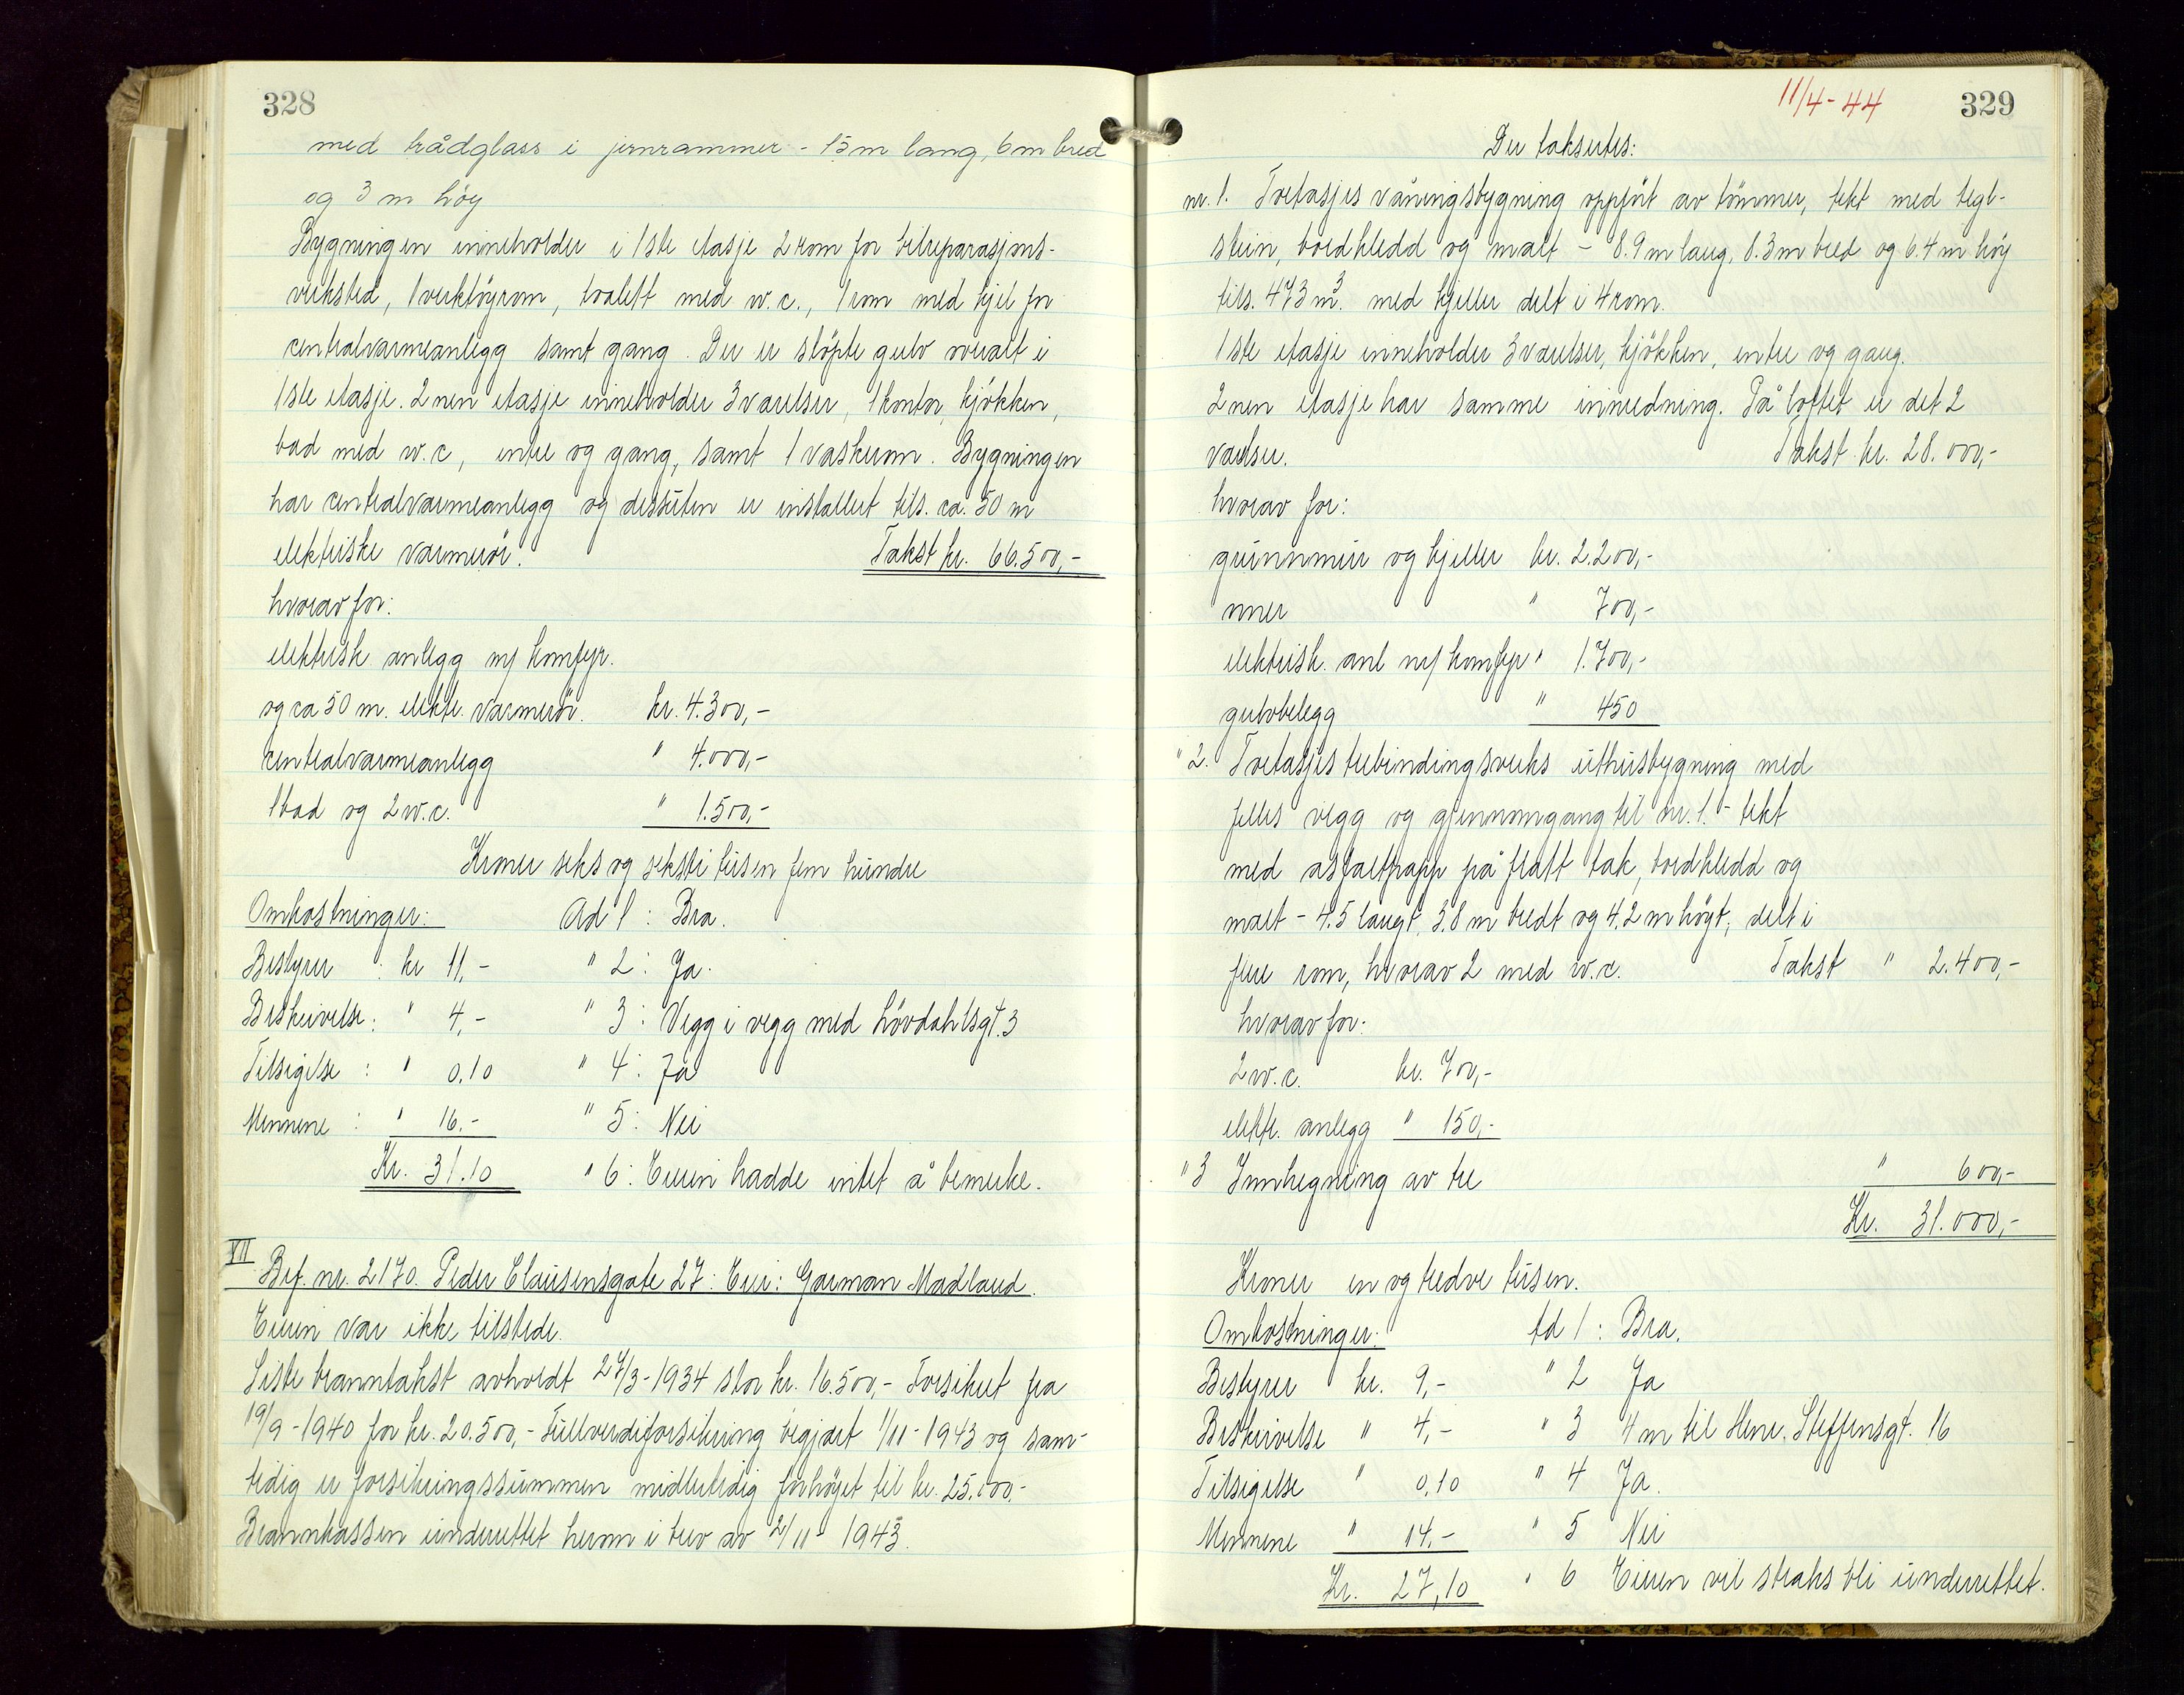 328
med trådglass i jernrammer - 15 m lang, 6 m bred
og 3 m höy
Bygningen inneholder i 1ste etasje 2 rom for bilreparasjons-
verksted, 1 verktöyrom, toalett med w.c., 1 rom med kjel for
centralvarmeanlegg samt gang. Der er stöpte gulv overalt i
1ste etasje. 2nen etasje inneholder 3 værelser, 1 kontor, kjökken,
bad med w.c, entre og gang, samt 1 vaskerom. Bygningen
har centralvarmeanlegg og dessuten er installert tils. ca. 50 m
elektriske varmerör. Takst kr. 66.500,-
hvorav for:
elektrisk anlegg m/ komfyr.
og ca 50 m. elektr. varmerör. kr. 4.300,-
centralvarmeanlegg " 4.000,-
1 bad og 2 w.c. " 1.500,-
Kroner seks og seksti tusen fem hundre
Omkostninger: Ad 1 : Bra.
Bestyrer : kr 11,- " 2 : Ja.
Beskrivelse : " 4,- " 3 : Vegg i vegg med Lövdahlsgt. 3
Tilsigelse : " 0,10 " 4 : Ja
Mennene : " 16.- " 5 : Nei
Kr. 31.10 " 6 : Eieren hadde intet å bemerke.
VII Brf. nr. 2170. Peder Clausensgate 27 : Eier : Garman Madland.
Eieren var ikke tilstede.
Siste branntakst avholdt 27/3-1934 stor kr. 16.500,- Forsikret fra
19/9-1940 for kr. 20.500,- Fullverdiforsikring begjært 1/11-1943 og sam-
tidig er forsikringssummen midlertidig forhöyet til kr. 25.000.-
Brannkassen underrettet herom i brev av 2/11- 1943.
11/4-44 329
Der takseres:
nr. 1. Toetasjes våningsbygning oppfört av tömmer, tekt med tegl-
stein, bordkledd og malt - 8.9 m lang, 8.3 m bred og 6.4 m höy
tils. 473 m³. med kjeller delt i 4 rom.
1ste etasje inneholder 3 værelser, kjökken, entre og gang.
2nen etasje har samme innredning. På loftet er det 2
værelser. Takst kr. 28.000,-
hvorav for:
grunnmur og kjeller kr. 2.200,-
ovner " 700,-
elektrisk. anl m/ komfyr " 1.700,-
gulvbelegg " 450
" 2. Toetasjes trebindingsverks uthusbygning med
felles vegg og gjennomgang til nr. 1. - tekt
med asfaltpapp på flatt tak, bordkledd og
malt - 4.5 langt, 3.8 m bredt og 4.2 m höyt, delt i
fire rom, hvorav 2 med w.c. Takst " 2.400,-
hvorav for:
2 w.c. kr. 700,-
elektr. anlegg " 150,-
" 3 Innhegning av tre " 600,-
Kr. 31.000,-
Kroner en og tredve tusen.
Omkostninger: Ad 1 : Bra.
Bestyrer kr. 9,- " 2 Ja
Beskrivelse " 4,- " 3 4 m til Henr. Steffensgt. 16
Tilsigelse " 0,10 " 4 Ja.
Mennene " 14,- " 5 Nei
Kr. 27,10 " 6 Eieren vil straks bli underrettet.